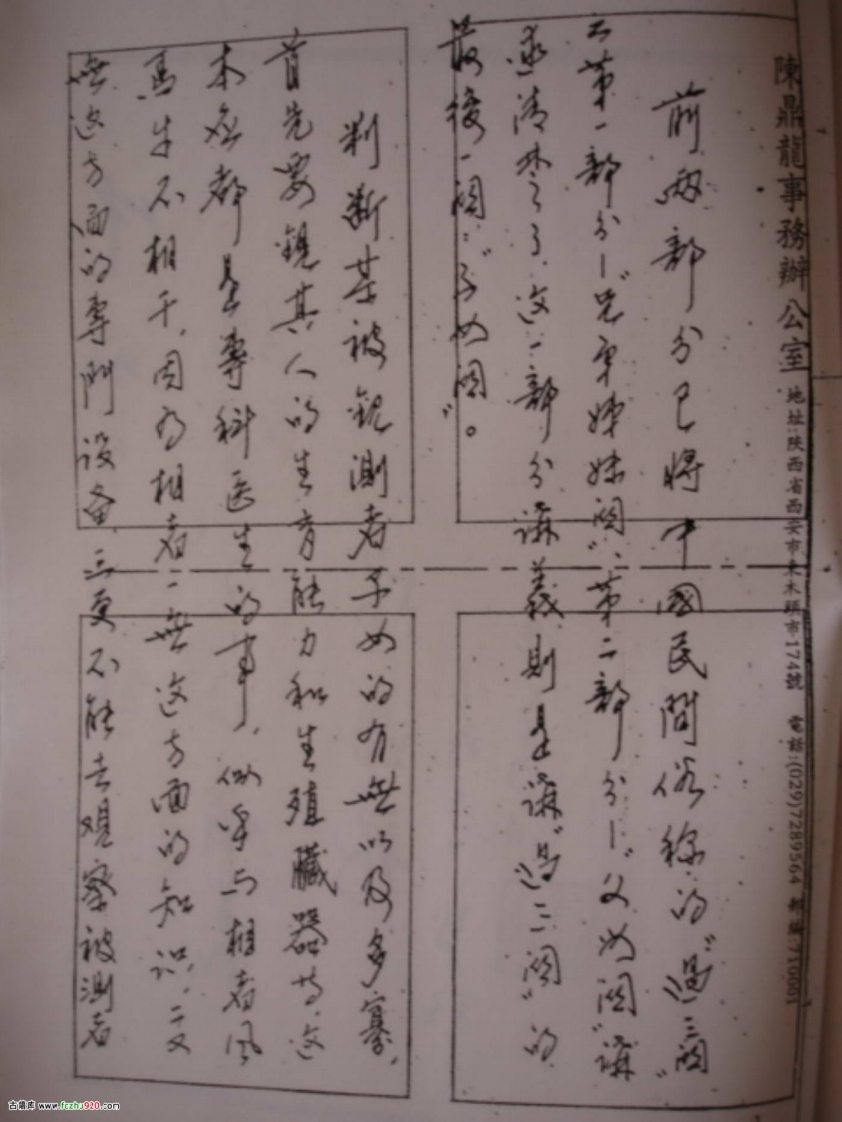 陳鼎龍事務辦公室 地址:陕西省西安市東木頭市174號 電話:(029)7289564 郵編:710001
前兩部分已將中國民間俗称的“過三關”
之第一部分—“兄弟姊妹關”、第二部分—“父母關”講
述清楚了，这一部分講義則是講“過三關”的
最後一關：“子女關”。
判斷某被観測者子女的有無以及多寡，
首先要観其人的生育能力和生殖臟器等，这
本應都是專科医生的事，似乎与相者風
馬牛不相干，因为相者一無这方面的知识，二又
無这方面的專門设备，三更不能去观察被测者
古籍库 www.fczhu920.com